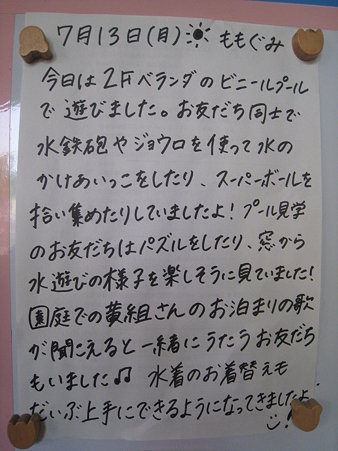 7月13日(月)☀ ももぐみ
今日は2Fベランダのビニールプール
で遊びました。お友だち同士で
水鉄砲やジョウロを使って水の
かけあいっこをしたり、スーパーボールを
拾い集めたりしていましたよ!プール見学
のお友だちはパズルをしたり、窓から
水遊びの様子を楽しそうに見ていました!
園庭での黄組さんのお泊まりの歌
が聞こえると一緒にうたうお友だち
もいました♫ 水着のお着替えも
だいぶ上手にできるようになってきましたよ!